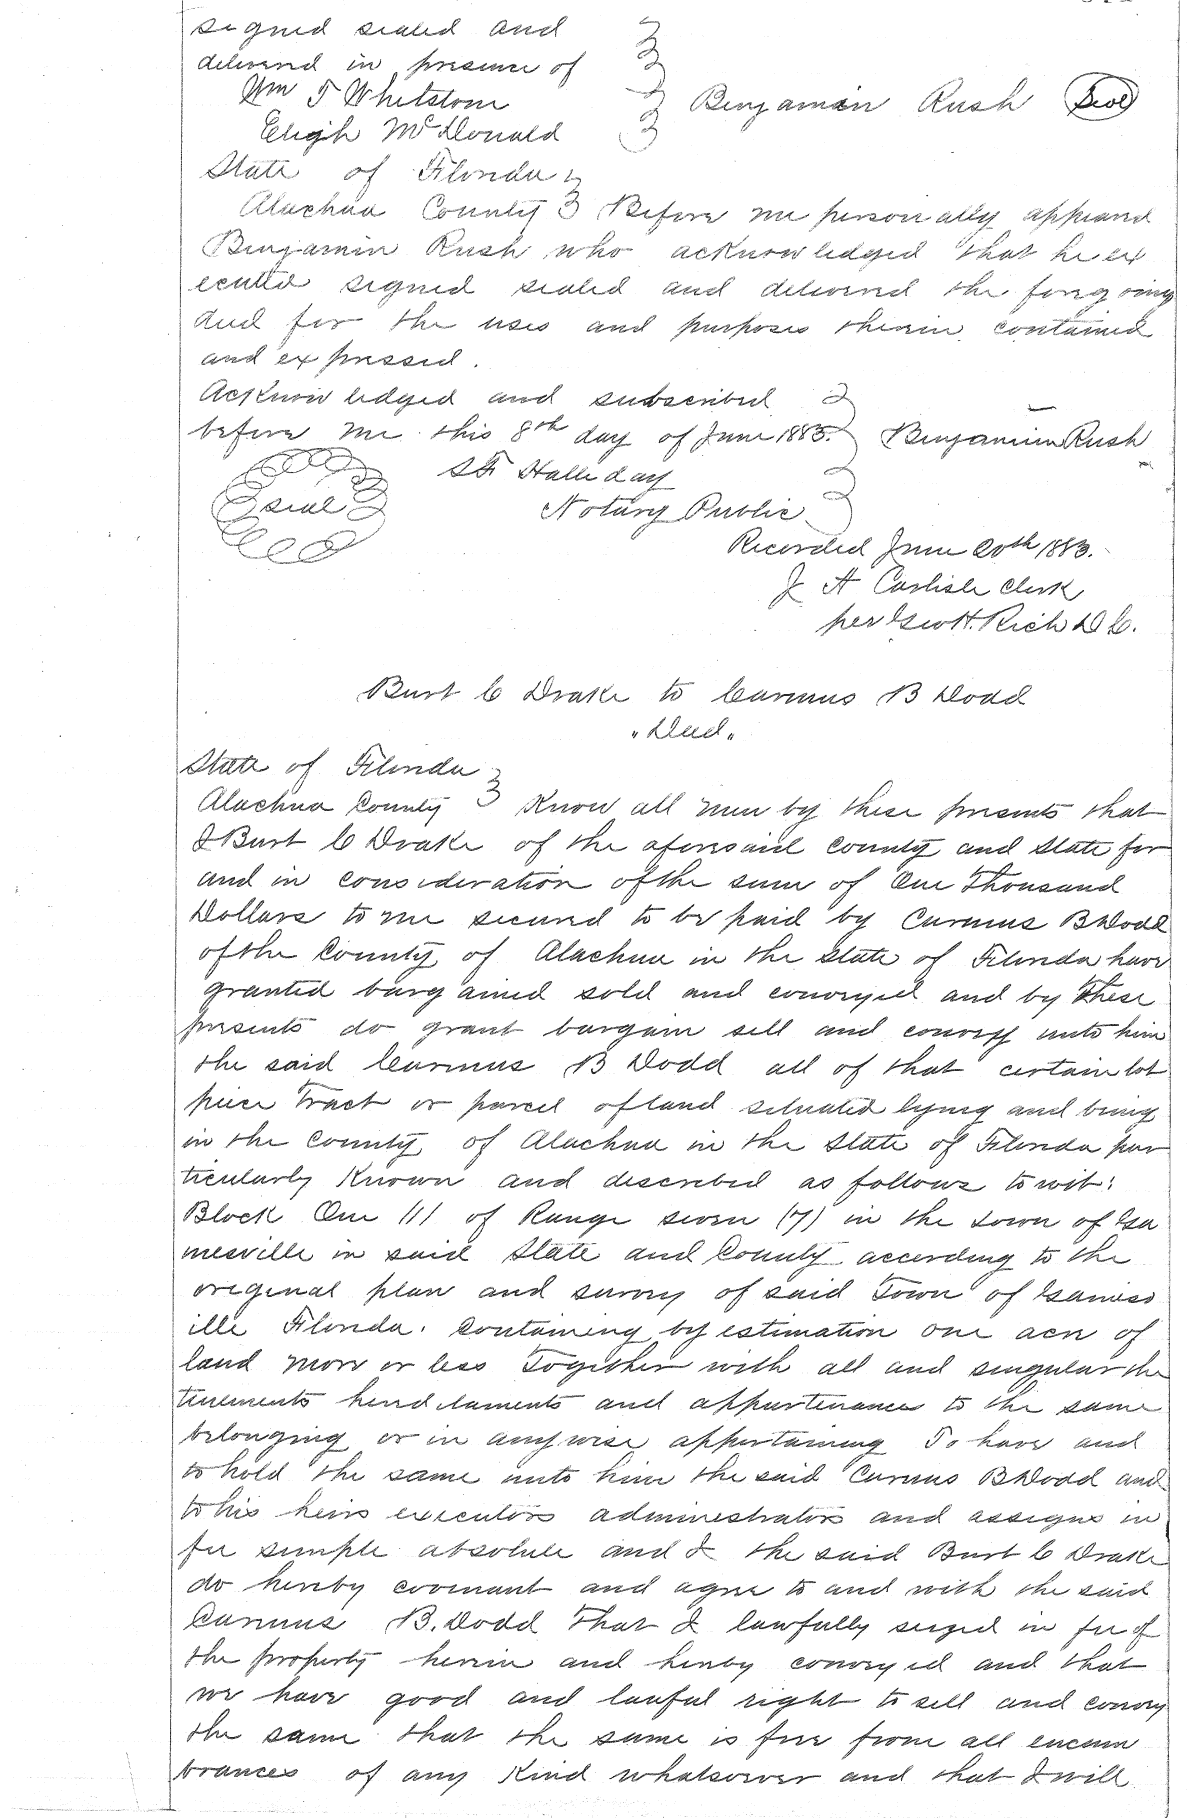 signed sealed and
delivered in presence of
Wm T Whitstone
Benjamin Rush Seal
Eligh McDonald
State of Florida
Alachua County Before me personally appeared
Benjamin Rush who acknowledged that he ex
ecuted signed sealed and delivered the foregoing
deed for the uses and purposes therein contained
and expressed.
Acknowledged and subscribed
before me this 8th day of June 1883. Benjamin Rush
S F Halliday
seal
Notary Public
Recorded June 20th 1883.
J A Carlisle Clerk
per Geo H. Rich D C.
Burt C Drake to Carmus B Dodd
"Deed"
State of Florida
Alachua County Know all men by these presents that
I Burt C Drake of the aforesaid county and state for
and in consideration of the sum of One Thousand
Dollars to me secured to be paid by Carmus B Dodd
of the County of Alachua in the State of Florida have
granted bargained sold and conveyed and by these
presents do grant bargain sell and convey unto him
the said Carmus B Dodd all of that certain lot
piece tract or parcel of land situated lying and being
in the County of Alachua in the State of Florida par
ticularly Known and described as follows to wit:
Block One (1) of Range seven (7) in the town of Ga
inesville in said State and County according to the
original plan and survey of said Town of Gainesv
ille Florida. Containing by estimation one acre of
land more or less Together with all and singular the
tenements hereditaments and appurtenances to the same
belonging or in anywise appertaining To have and
to hold the same unto him the said Carmus B Dodd and
to his heirs executors administrators and assigns in
fee simple absolute and I the said Burt C Drake
do hereby covenant and agree to and with the said
Carmus B. Dodd that I lawfully seized in fee of
the property herein and hereby conveyed and that
we have good and lawful right to sell and convey
the same that the same is free from all encum
brances of any Kind whatsoever and that I will